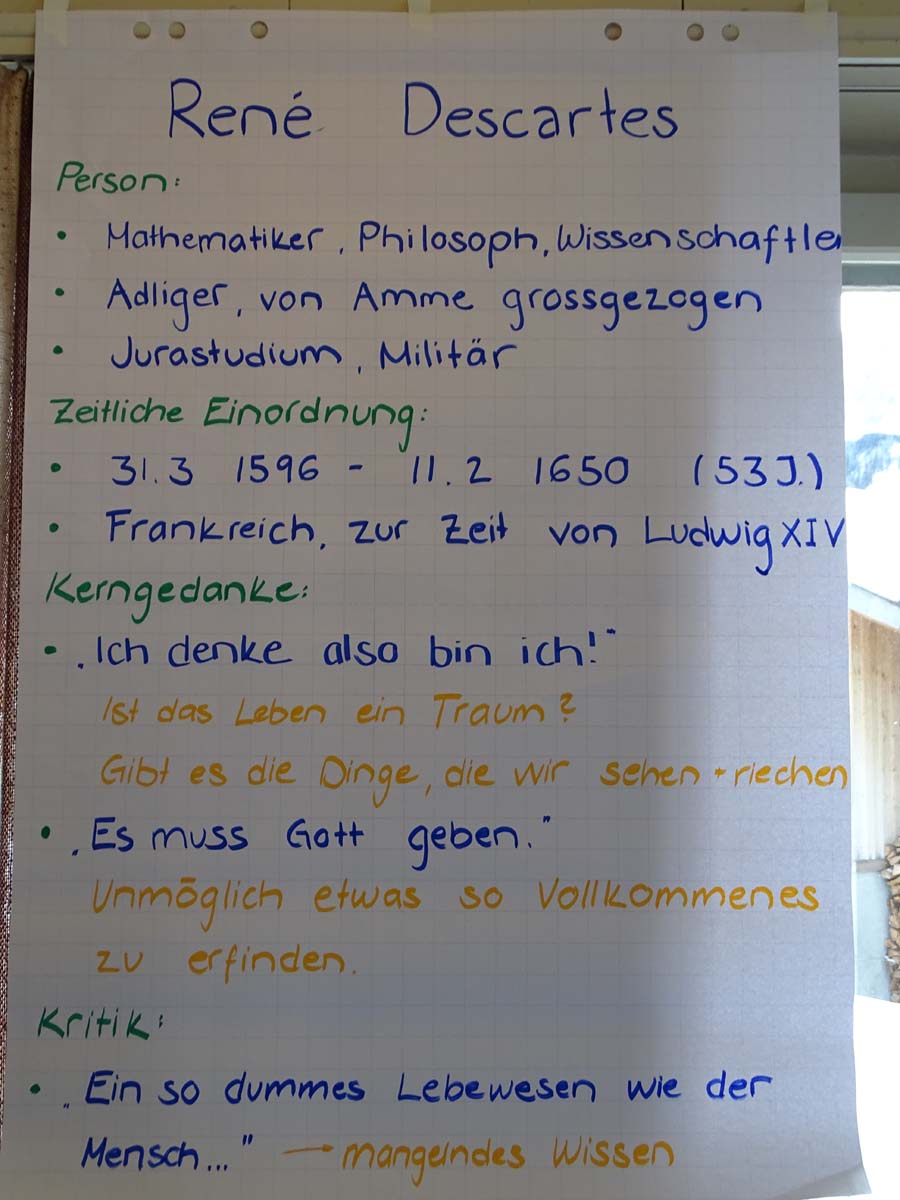 René Descartes
Person:
• Mathematiker, Philosoph, Wissenschaftler
• Adliger, von Amme grossgezogen
• Jurastudium, Militär
Zeitliche Einordnung:
• 31.3 1596 - 11.2 1650 (53 J.)
• Frankreich, zur Zeit von Ludwig XIV
Kerngedanke:
• „Ich denke also bin ich!"
Ist das Leben ein Traum?
Gibt es die Dinge, die wir sehen + riechen
• „Es muss Gott geben."
Unmöglich etwas so Vollkommenes
zu erfinden.
Kritik:
• „Ein so dummes Lebewesen wie der
Mensch..." → mangelndes Wissen